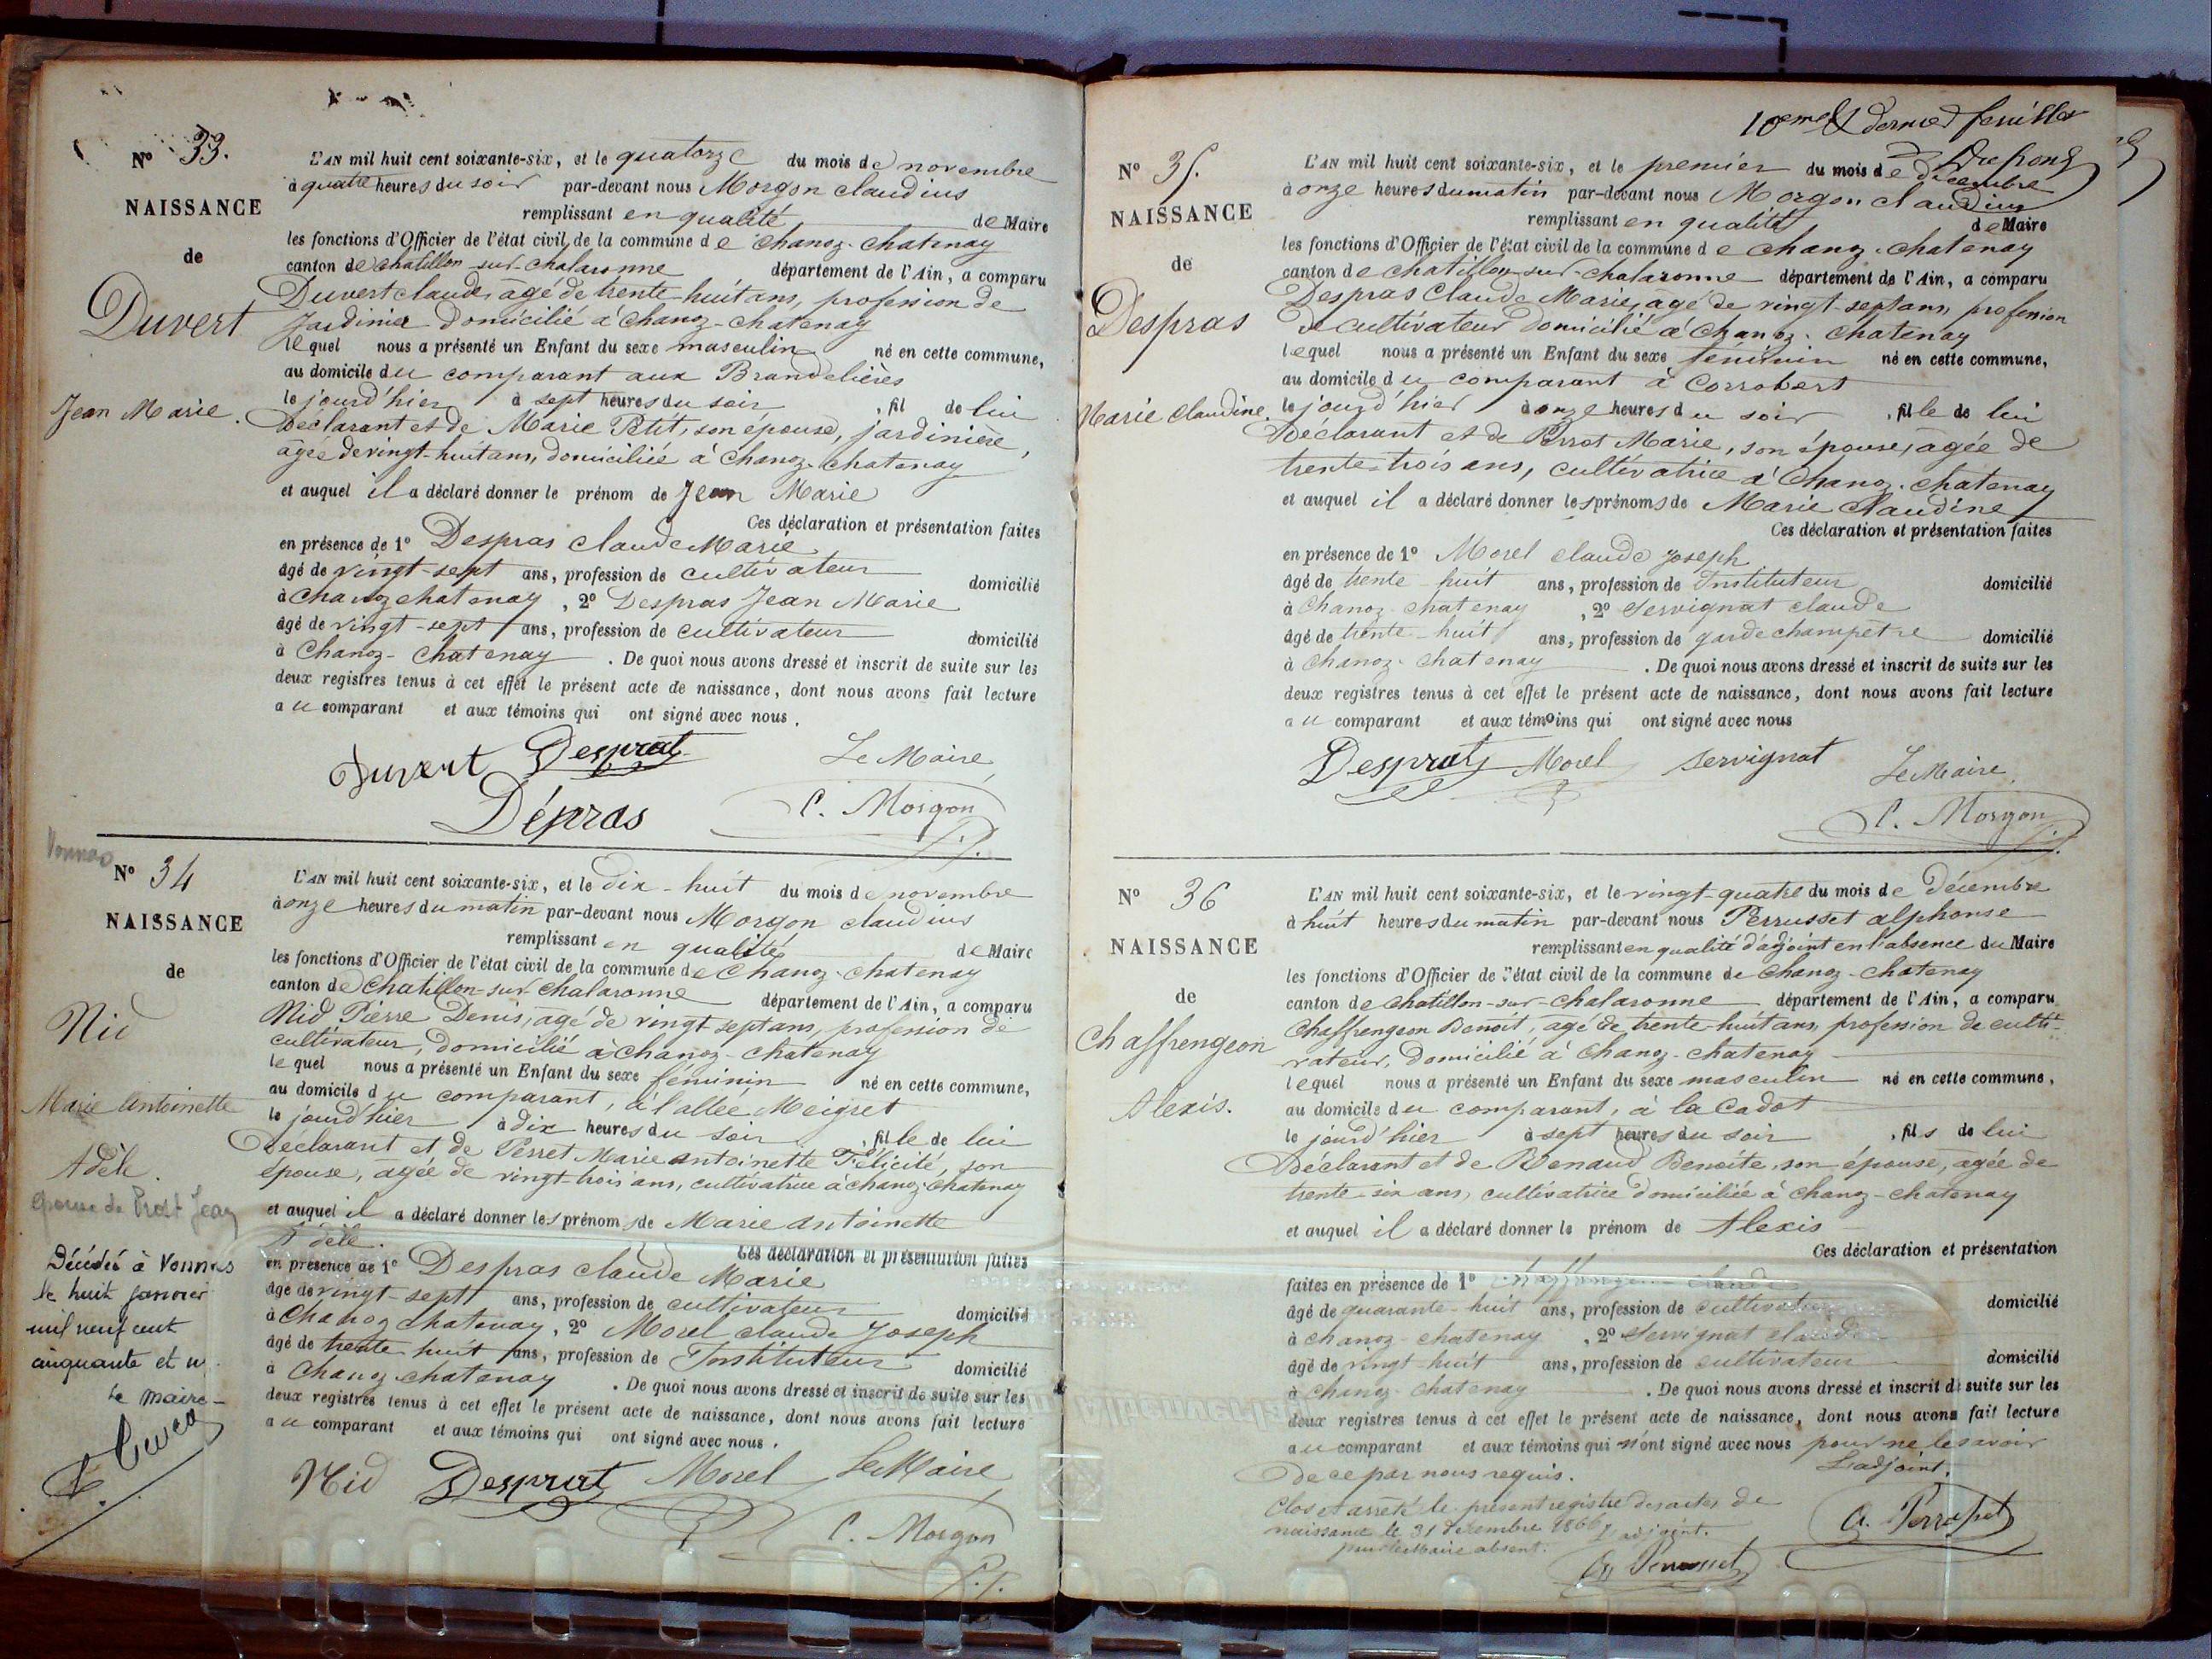 N° 33.
NAISSANCE
de
Duvert
Jean Marie.
L'AN mil huit cent soixante-six, et le quatorze du mois de novembre
à quatre heures du soir par-devant nous Morgon claudius
remplissant en qualité de Maire
les fonctions d'Officier de l'état civil de la commune de Chanoz-Chatenay
canton de chatillon-sur-chalaronne département de l'Ain, a comparu
Duvert claude, agé de trente-huit ans, profession de
Jardinier domicilié à Chanoz-chatenay
lequel nous a présenté un Enfant du sexe masculin né en cette commune,
au domicile du comparant aux Brandelières
le jourd'hier à sept heures du soir, fil de lui
Déclarant et de Marie Petit, son épouse, jardinière,
agée de vingt-huit ans, domiciliée à Chanoz-chatenay
et auquel il a déclaré donner le prénom de Jean Marie
Ces déclaration et présentation faites
en présence de 1° Despras claude Marie
âgé de vingt-sept ans, profession de cultivateur domicilié
à Chanoz chatenay, 2° Despras Jean Marie
âgé de vingt-sept ans, profession de cultivateur domicilié
à Chanoz-Chatenay. De quoi nous avons dressé et inscrit de suite sur les
deux registres tenus à cet effet le présent acte de naissance, dont nous avons fait lecture
au comparant et aux témoins qui ont signé avec nous.
Duvert Desprat Le Maire,
Dépras C. Morgon
Vonnas
N° 34
NAISSANCE
de
Nid
Marie Antoinette
Adèle
épouse de Prost Jean
Décédée à Vonnas
le huit janvier
mil neuf cent
cinquante et un
Le maire
L'AN mil huit cent soixante-six, et le dix-huit du mois de novembre
à onze heures du matin par-devant nous Morgon claudius
remplissant en qualité de Maire
les fonctions d'Officier de l'état civil de la commune de Chanoz-chatenay
canton de Chatillon-sur-Chalaronne département de l'Ain, a comparu
Nid Pierre Denis, agé de vingt sept ans, profession de
cultivateur, domicilié à chanoz-chatenay
lequel nous a présenté un Enfant du sexe féminin né en cette commune,
au domicile du comparant, à l'allée Meigret
le jourd'hier à dix heures du soir, fille de lui
Déclarant et de Perret Marie Antoinette Félicité, son
épouse, agée de vingt trois ans, cultivatrice à chanoz-Chatenay
et auquel il a déclaré donner les prénoms de Marie Antoinette
Adèle.
Ces déclaration et présentation faites
en présence de 1° Despras claude Marie
âgé de vingt-sept ans, profession de cultivateur domicilié
à Chanoz chatenay, 2° Morel claude Joseph
âgé de trente huit ans, profession de Instituteur domicilié
à Chanoz-chatenay. De quoi nous avons dressé et inscrit de suite sur les
deux registres tenus à cet effet le présent acte de naissance, dont nous avons fait lecture
au comparant et aux témoins qui ont signé avec nous.
Nid Desprat Morel Le Maire,
C. Morgon
10eme & dernier feuillet
N° 35.
NAISSANCE
de
Despras
Marie Claudine.
L'AN mil huit cent soixante-six, et le premier du mois de décembre
à onze heures du matin par-devant nous Morgon claudius
remplissant en qualité de Maire
les fonctions d'Officier de l'état civil de la commune de Chanoz-chatenay
canton de chatillon-sur-chalaronne département de l'Ain, a comparu
Despras Claude Marie, agé de vingt-sept ans, profession
de cultivateur domicilié à Chanoz-Chatenay
lequel nous a présenté un Enfant du sexe féminin né en cette commune,
au domicile du comparant à Corrobert
le jourd'hier à onze heures du soir, fille de lui
Déclarant et de Perrot Marie, son épouse, agée de
trente-trois ans, cultivatrice à Chanoz-chatenay
et auquel il a déclaré donner les prénoms de Marie Claudine
Ces déclaration et présentation faites
en présence de 1° Morel claude Joseph
âgé de trente-huit ans, profession de Instituteur domicilié
à Chanoz-chatenay, 2° Servignat claude
âgé de trente-huit ans, profession de garde champêtre domicilié
à Chanoz-chatenay. De quoi nous avons dressé et inscrit de suite sur les
deux registres tenus à cet effet le présent acte de naissance, dont nous avons fait lecture
au comparant et aux témoins qui ont signé avec nous
Desprat Morel Servignat Le Maire,
C. Morgon
N° 36
NAISSANCE
de
Chaffrengeon
Alexis.
L'AN mil huit cent soixante-six, et le vingt-quatre du mois de décembre
à huit heures du matin par-devant nous Perrusset alphonse
remplissant en qualité d'adjoint en l'absence du Maire
les fonctions d'Officier de l'état civil de la commune de Chanoz-Chatenay
canton de Chatillon-sur-chalaronne département de l'Ain, a comparu
Chaffrengeon Benoit, agé de trente-huit ans, profession de culti-
vateur, domicilié à Chanoz-chatenay
lequel nous a présenté un Enfant du sexe masculin né en cette commune,
au domicile du comparant, à la Cadot
le jourd'hier à sept heures du soir, fils de lui
Déclarant et de Renaud Benoite, son épouse, agée de
trente-six ans, cultivatrice domiciliée à chanoz-chatenay
et auquel il a déclaré donner le prénom de Alexis
Ces déclaration et présentation
faites en présence de 1° Chaffrengeon Claude
âgé de quarante-huit ans, profession de cultivateur domicilié
à chanoz-chatenay, 2° Servignat claude
âgé de vingt-huit ans, profession de cultivateur domicilié
à Chanoz-Chatenay. De quoi nous avons dressé et inscrit de suite sur les
deux registres tenus à cet effet le présent acte de naissance, dont nous avons fait lecture
au comparant et aux témoins qui n'ont signé avec nous pour ne le savoir
de ce par nous requis. L'adjoint.
Clos et arrêté le présent registre des actes de
naissance le 31 décembre 1866 L'adjoint.
pour le Maire absent.
A. Perrusset
A. Perrusset